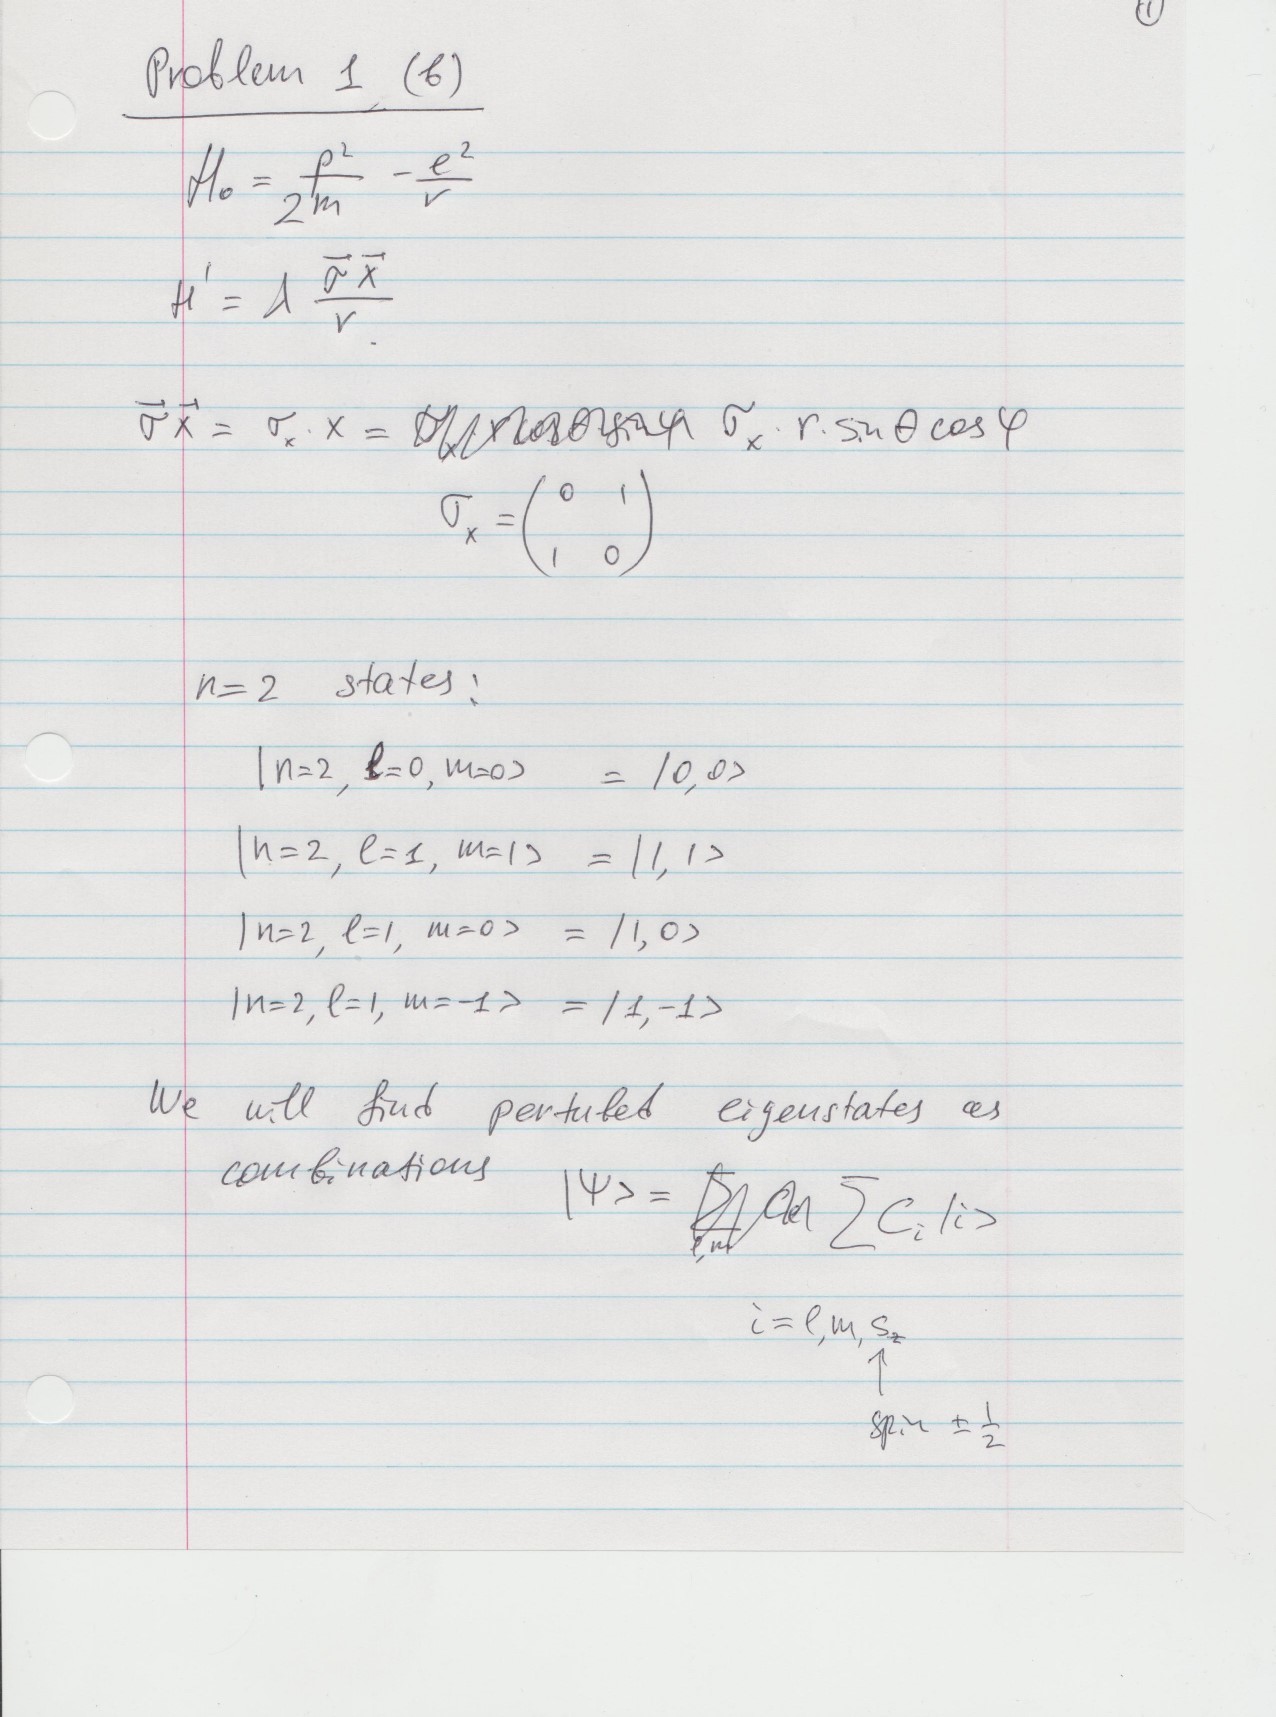 ①
Problem 1 (b)
H₀ = p²/2m - e²/r
H' = λ σ⃗x⃗/r
σ⃗x⃗ = σₓ · x = σₓ · r · sin θ cos φ
σₓ = (0 1
1 0)
n=2 states:
|n=2, l=0, m=0> = |0,0>
|n=2, l=1, m=1> = |1,1>
|n=2, l=1, m=0> = |1,0>
|n=2, l=1, m=-1> = |1,-1>
We will find pertubed eigenstates as
combinations |Ψ> = Σ Cᵢ |i>
i = l, m, s_z
↑
spin ± 1/2